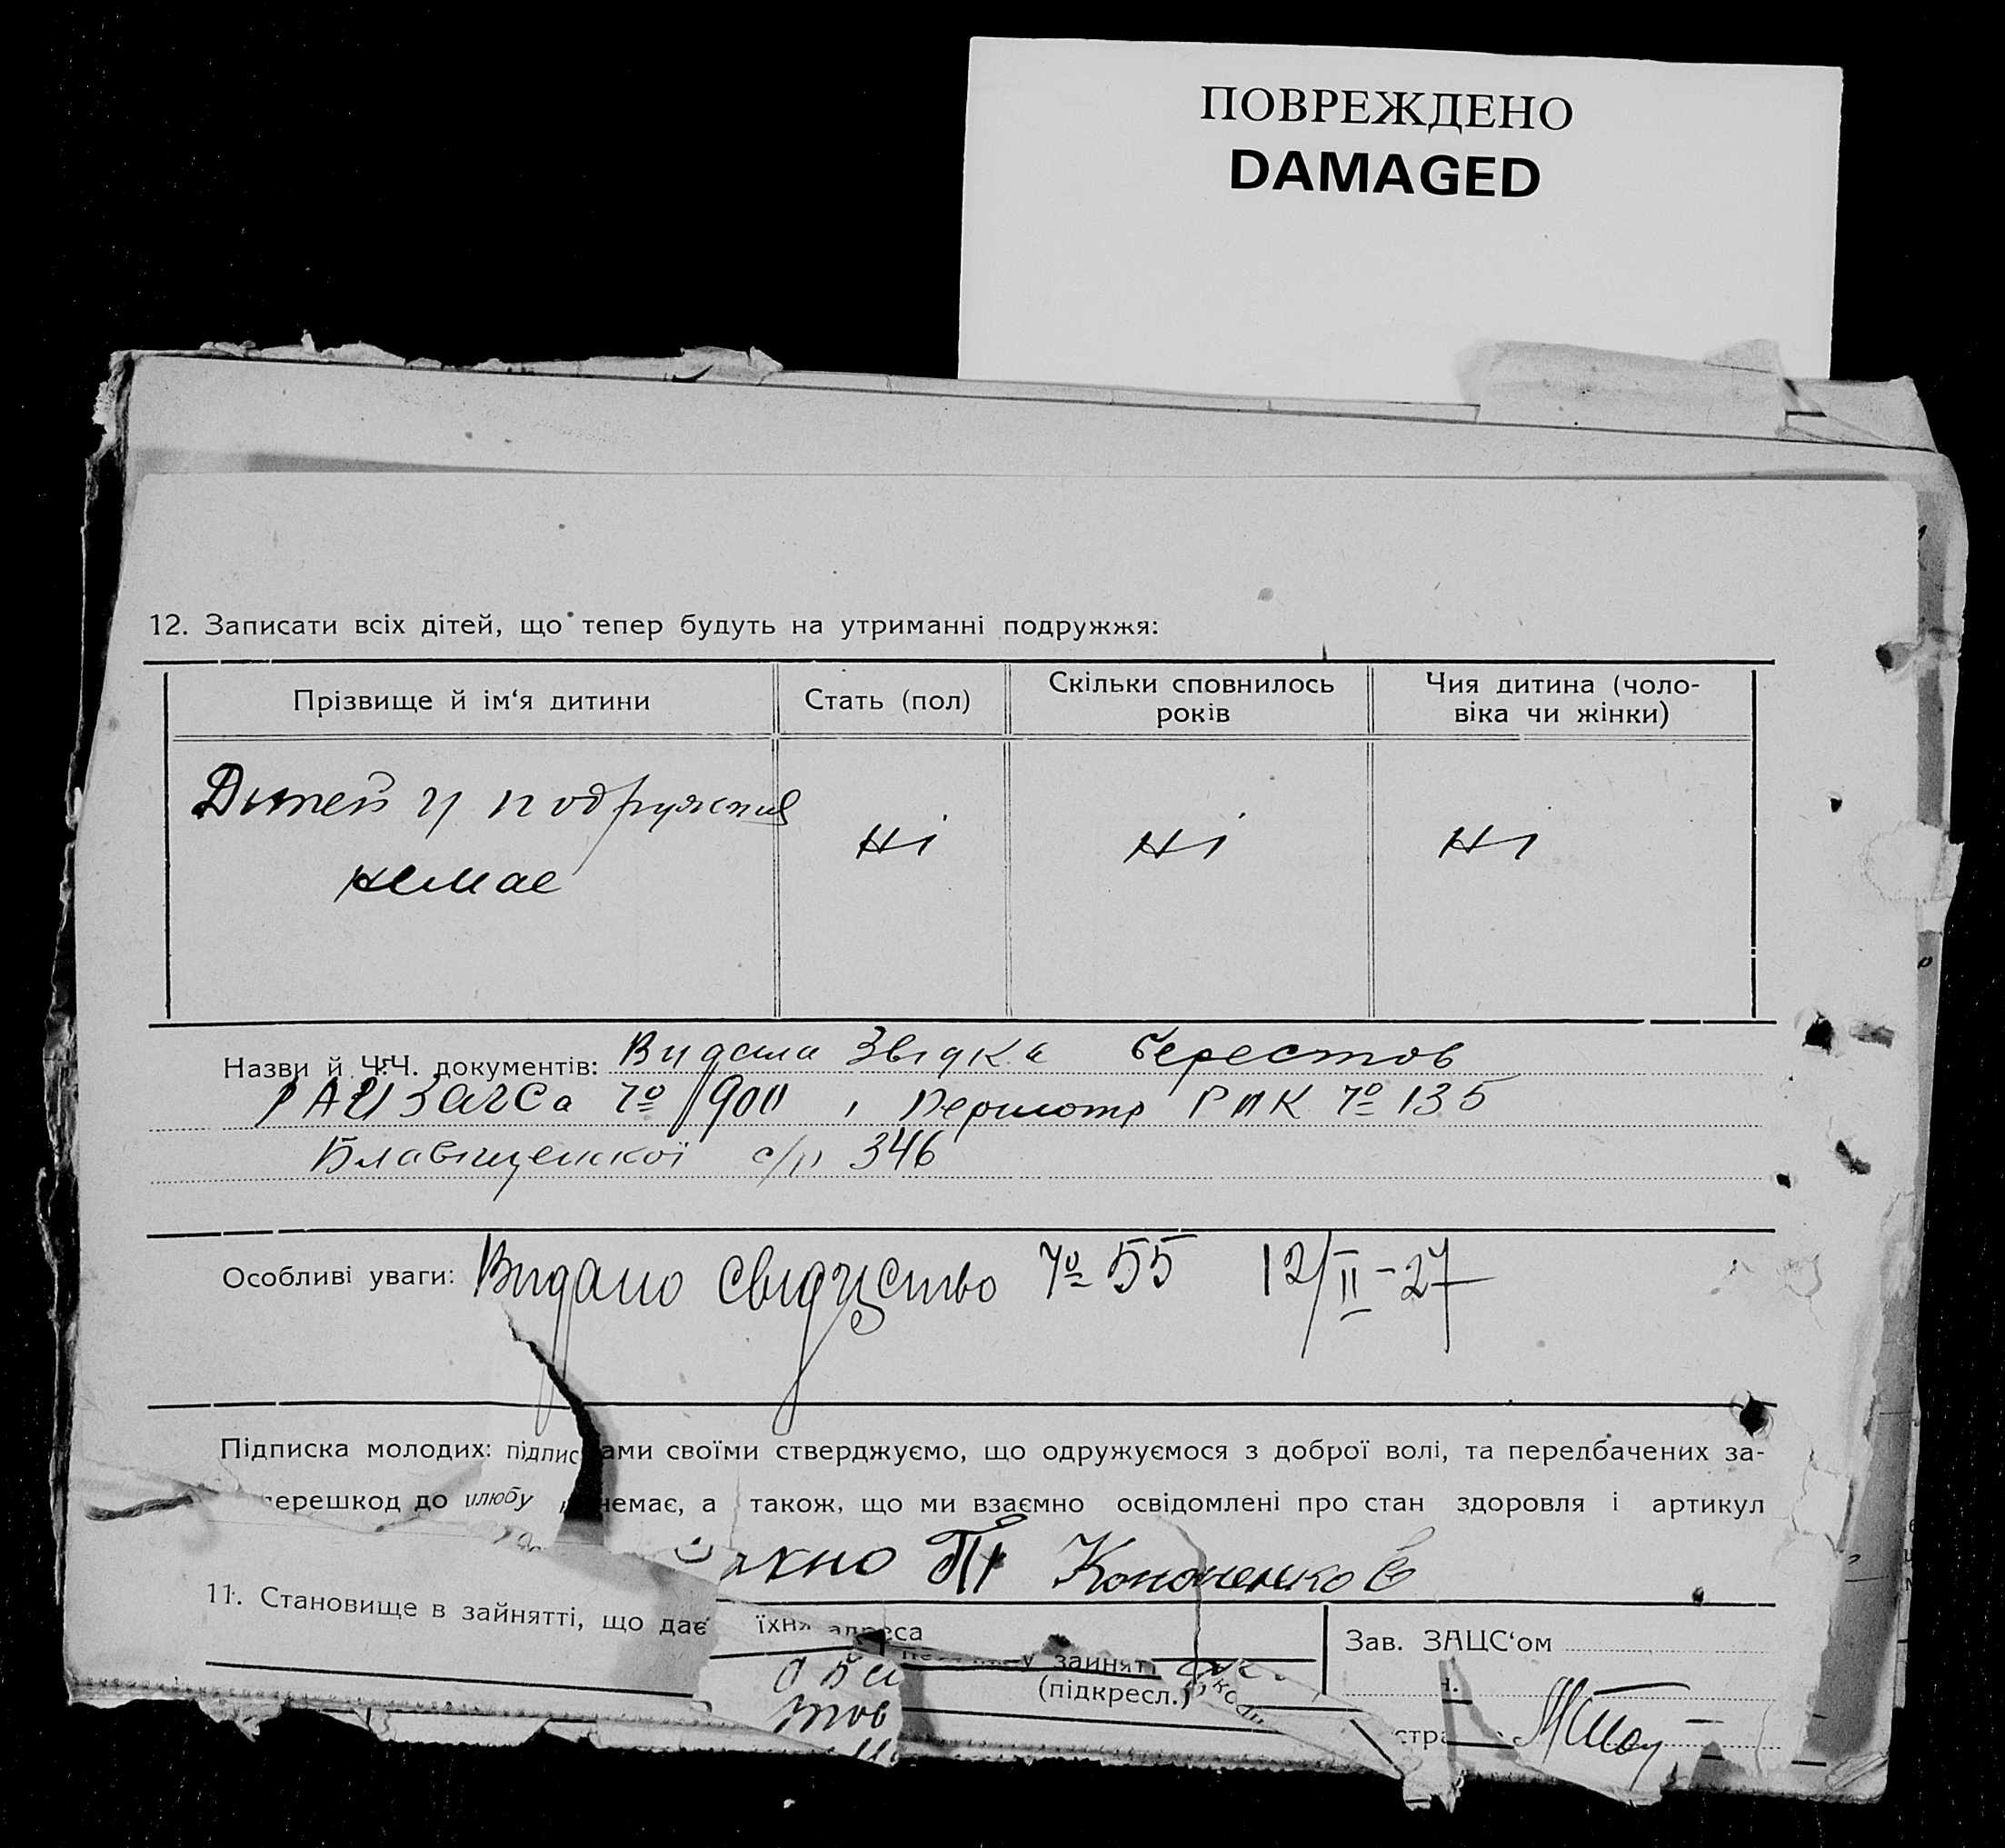 ПОВРЕЖДЕНО
DAMAGED
12. Записати всіх дітей, що тепер будуть на утриманні подружжя:
Прізвище й ім‘я дитини
Стать (пол)
Скільки сповнилось
років
Чия дитина (чоло-
віка чи жінки)
Дитей у подружжия
немае
ні
ні
ні
Назви й Ч.Ч. документів: Видана Звідка Берестов
РАЙЗАГСа № 900, РПК № 135
Благовіщенської с/р 346
Особливі уваги: Видано свідуство № 55 12/II-27
Підписка молодих: підписами своїми стверджуємо, що одружуємося з доброї волі, та передбачених за-
перешкод до шлюбу немає, а також, що ми взаємно освідомлені про стан здоровля і артикул
хно Кононенко
11. Становище в зайнятті, що дає
їхня адреса
зайнят
(підкресл.)
Зав. ЗАЦС‘ом
тов
стра